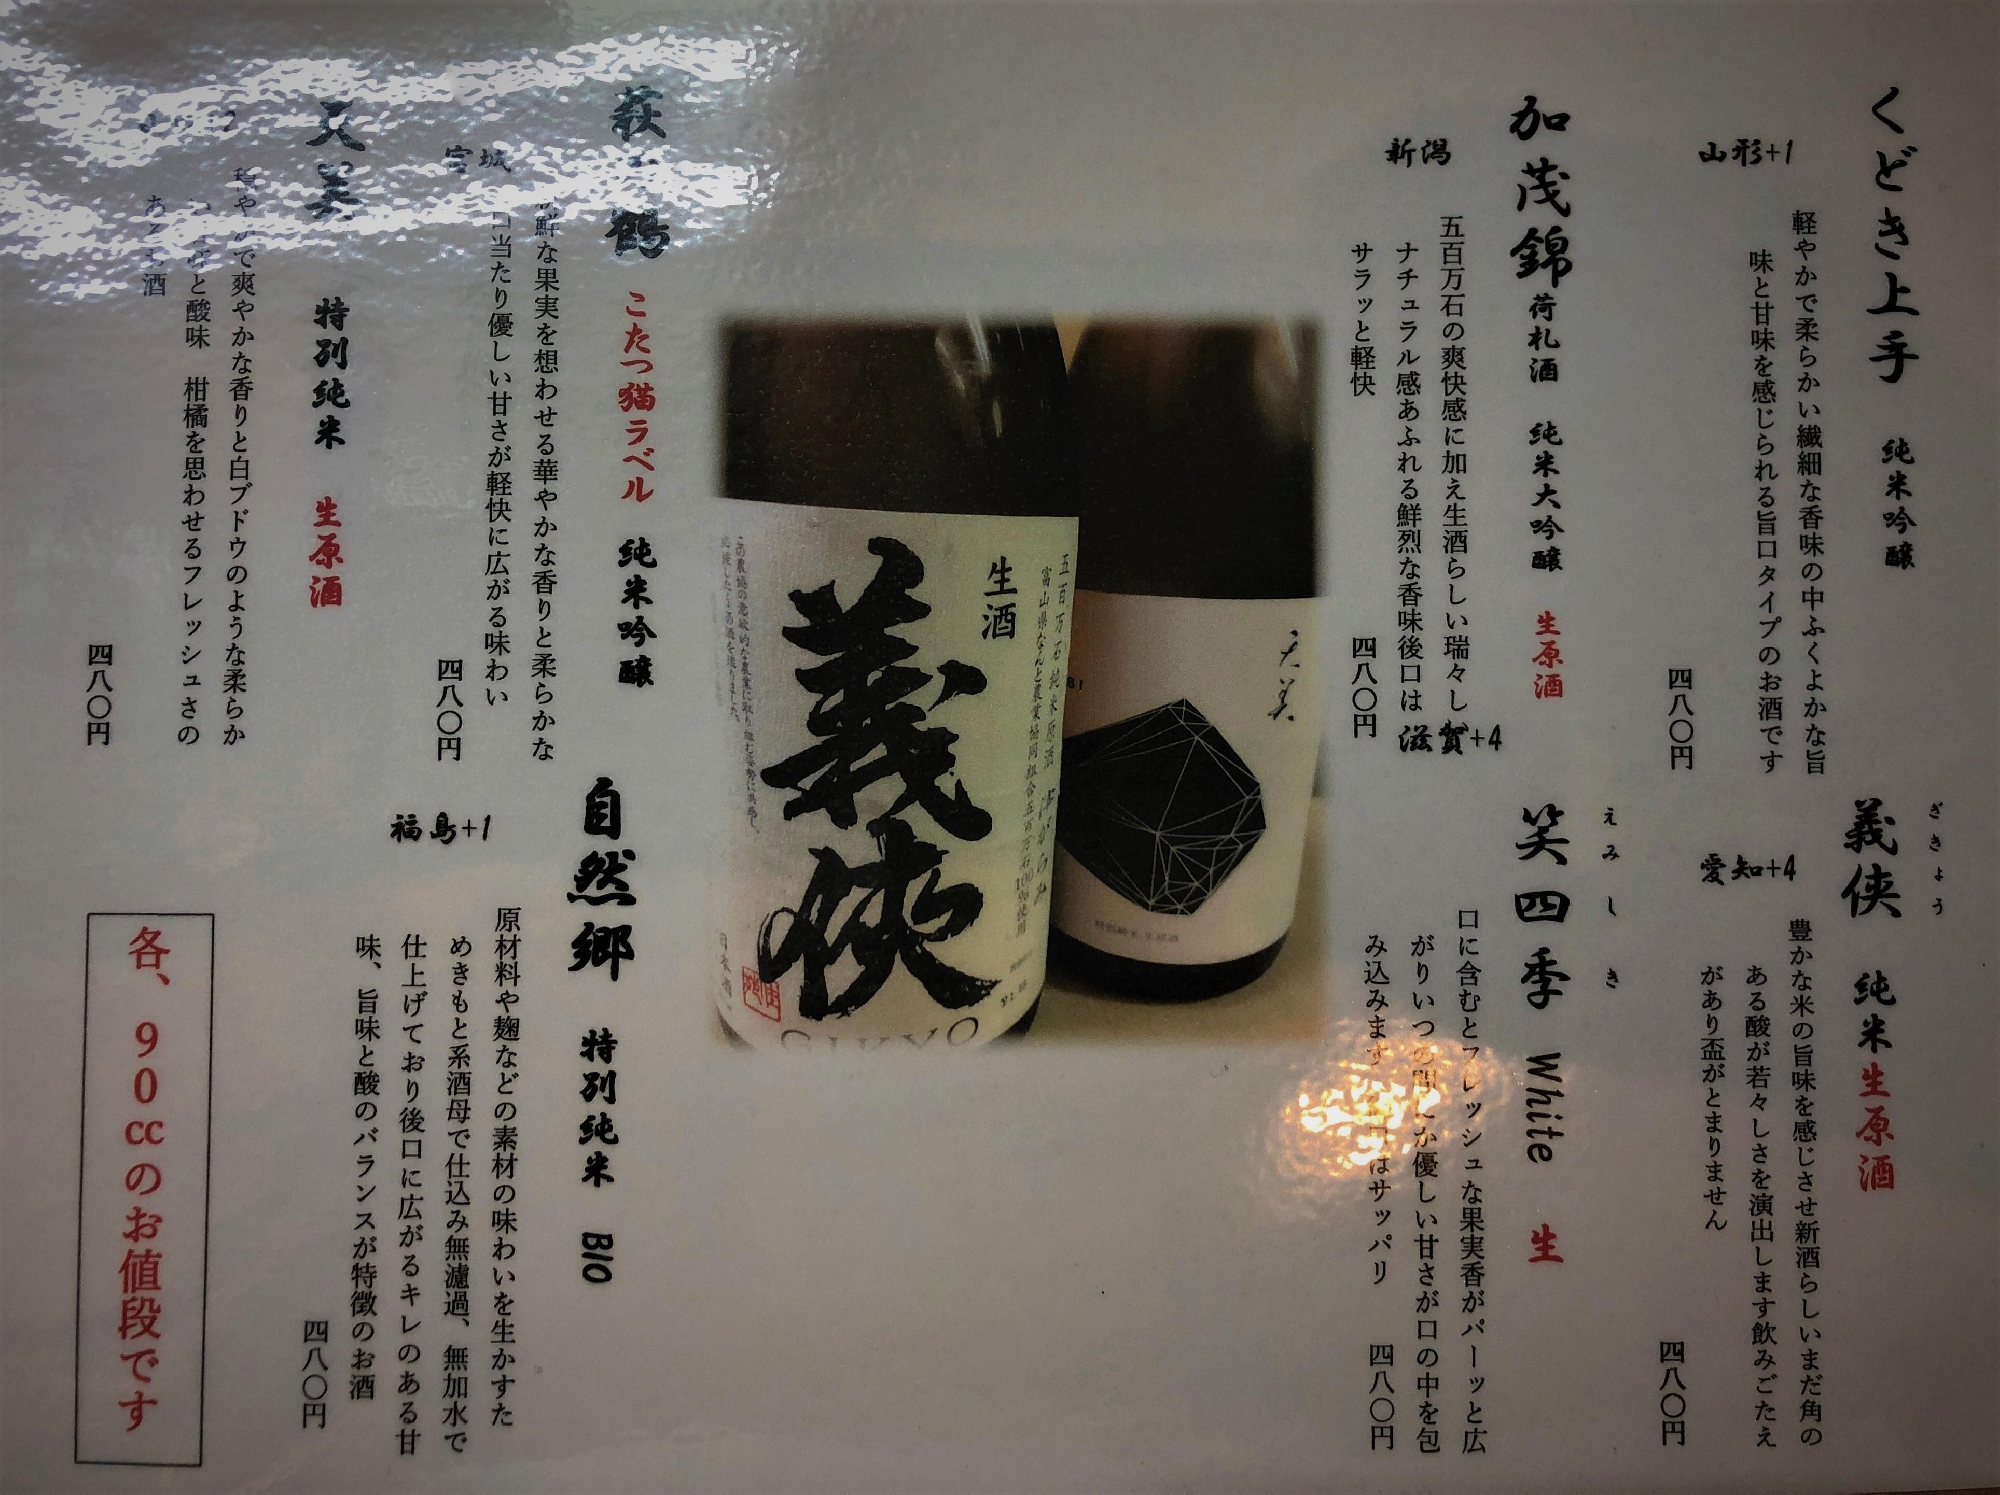 くどき上手 純米吟醸
山形+1
軽やかで柔らかい繊細な香味の中ふくよかな旨
味と甘味を感じられる旨口タイプのお酒です
四八〇円
加茂錦 荷札酒 純米大吟醸 生原酒
新潟
五百万石の爽快感に加え生酒らしい瑞々し
ナチュラル感あふれる鮮烈な香味後口は
サラッと軽快
四八〇円
ぎきょう
義侠 純米生原酒
愛知+4
豊かな米の旨味を感じさせ新酒らしいまだ角の
ある酸が若々しさを演出します飲みごたえ
があり盃がとまりません
四八〇円
えみしき
笑四季 White 生
滋賀+4
口に含むとフレッシュな果実香がパーッと広
がりいつの間にか優しい甘さが口の中を包
み込みます はサッパリ
四八〇円
五百万石純米原酒
富山県なんと農業協同組合五百万石100%使用
生酒
義侠
GIKYO
天美
萩 鶴 こたつ猫ラベル 純米吟醸
宮城
鮮な果実を想わせる華やかな香りと柔らかな
口当たり優しい甘さが軽快に広がる味わい
四八〇円
天美 特別純米 生原酒
穏やかで爽やかな香りと白ブドウのような柔らか
と酸味 柑橘を思わせるフレッシュさの
ある 酒
四八〇円
自然郷 特別純米 BIO
福島+1
原材料や麹などの素材の味わいを生かすた
めきもと系酒母で仕込み無濾過、無加水で
仕上げており後口に広がるキレのある甘
味、旨味と酸のバランスが特徴のお酒
四八〇円
各、90ccのお値段です